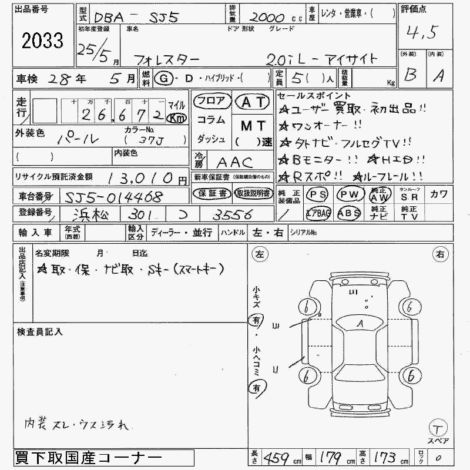 出品番号 2033
型式 DBA-SJ5
排気量 2000 cc
車歴 レンタ・営業車・( )
評価点 4.5
初年度登録 25/5月
車名 フォレスター
ドア 形状 グレード 2.0iL-アイサイト
車検 28年 5月
燃料 G・D・ハイブリッド・( )
定員 5( )人
積載量 Kg
(外装) B
(内装) A
走行 十万 26,672 マイル Km
外装色 パール
カラーNo. (37J)
(内装色)
フロア
コラム
ダッシュ
AT
MT
( )速
冷房 AAC
セールスポイント
★ユーザー買取・初出品!!
★ワンオーナー!!
★外ナビ・フルセグTV!!
★Bモニター!! ★HID!!
★Rスポ!! ★ルーフレール!!
リサイクル預託済金額 13,010円
新車保証書
保証書 取扱説明書
車台番号 SJ5-014468
登録番号 浜松 301 つ 3556
純正装備品 PS PW 純正AW サンルーフ SR カワ
エアBAG ABS 純正ナビ 純正TV
輸入車 年式 輸入区分 ディーラー・並行 ハンドル 左・右 シリアルNo.
出品店記入 (注意事項)
名変期限 月 日迄
★取・保・ナビ取・Sキー(スマートキー)
検査員記入
内装 スレ・ウス汚れ
左
右
小キズ 有
小ヘコミ 有
A
6
6
6
6
T
スペア
買下取国産コーナー
長さ 459cm 幅 179cm 高さ 173cm ロック 0